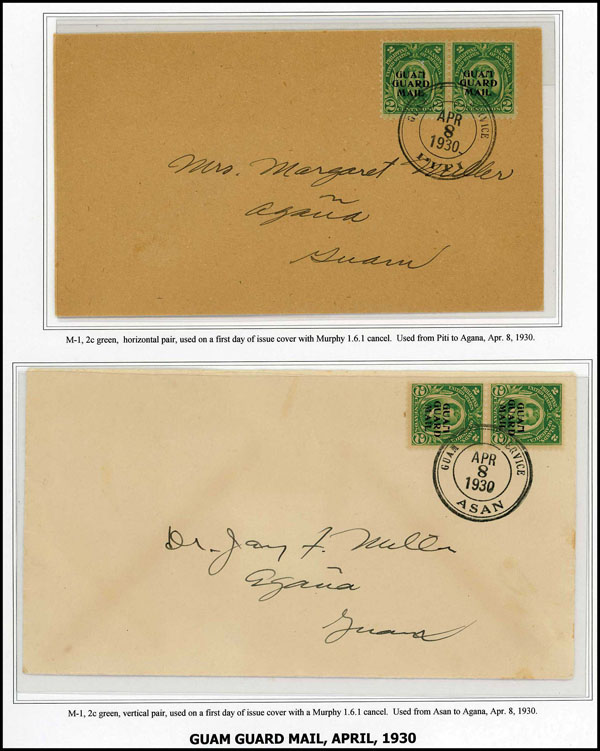 GUAM
GUARD
MAIL
GUAM
GUARD
MAIL
APR
8
1930
Mrs. Margaret Miller
Agaña
Guam
M-1, 2c green, horizontal pair, used on a first day of issue cover with Murphy 1.6.1 cancel. Used from Piti to Agana, Apr. 8, 1930.
GUAM
GUARD
MAIL
GUAM
GUARD
MAIL
GUAM
APR
8
1930
ASAN
Dr. Jay F. Miller
Agaña
Guam
M-1, 2c green, vertical pair, used on a first day of issue cover with a Murphy 1.6.1 cancel. Used from Asan to Agana, Apr. 8, 1930.
GUAM GUARD MAIL, APRIL, 1930